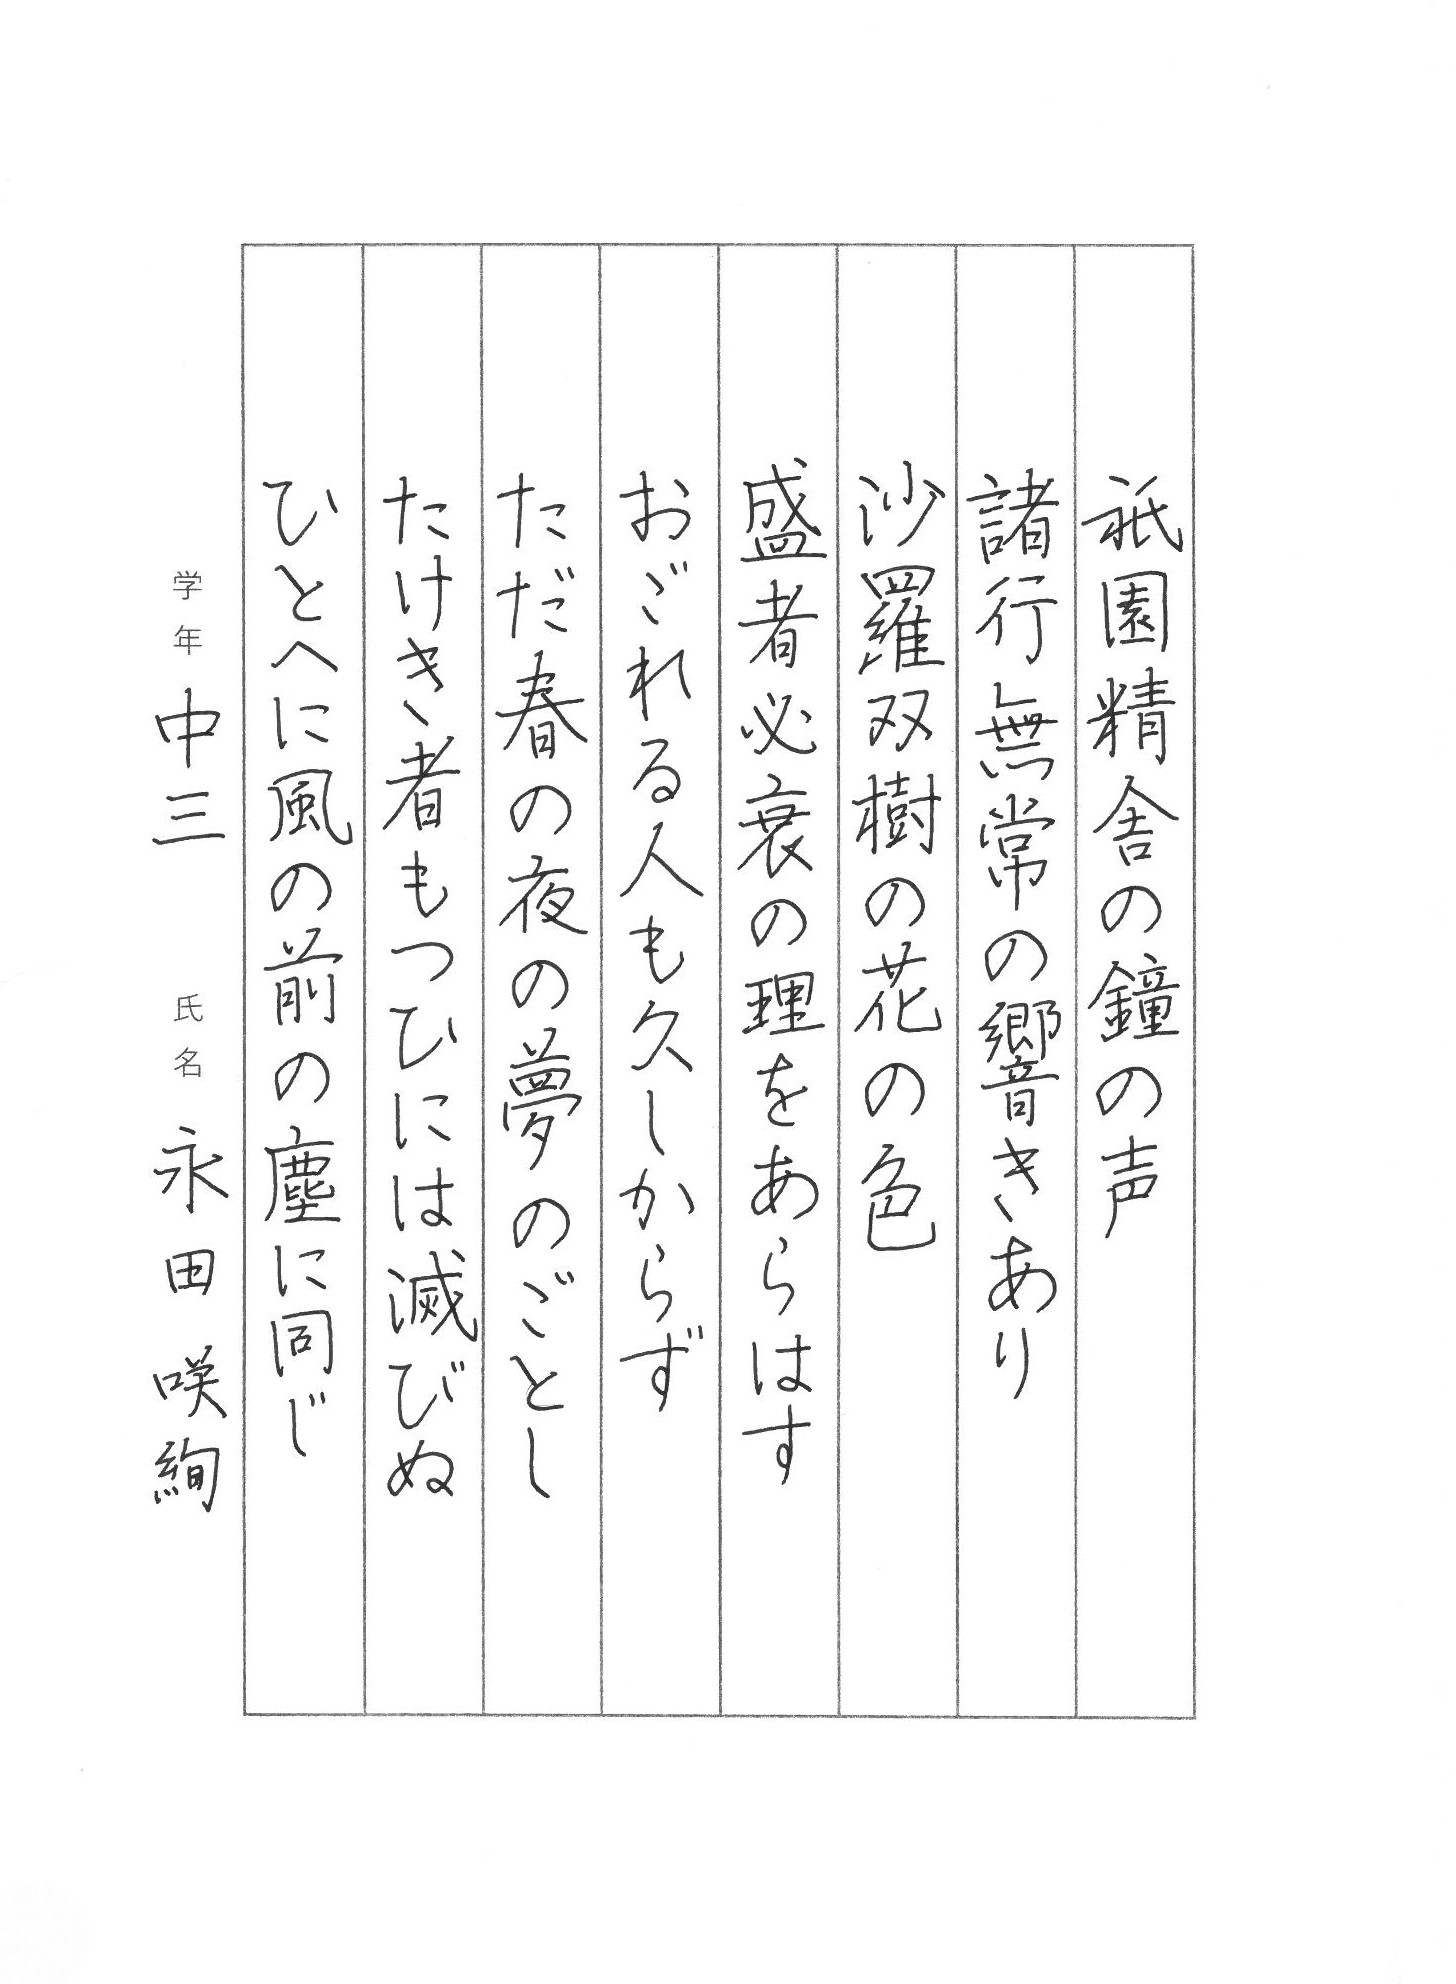 祇園精舎の鐘の声
諸行無常の響きあり
沙羅双樹の花の色
盛者必衰の理をあらはす
おごれる人も久しからず
ただ春の夜の夢のごとし
たけき者もつひには滅びぬ
ひとへに風の前の塵に同じ
学年 中三 氏名 永田咲絢